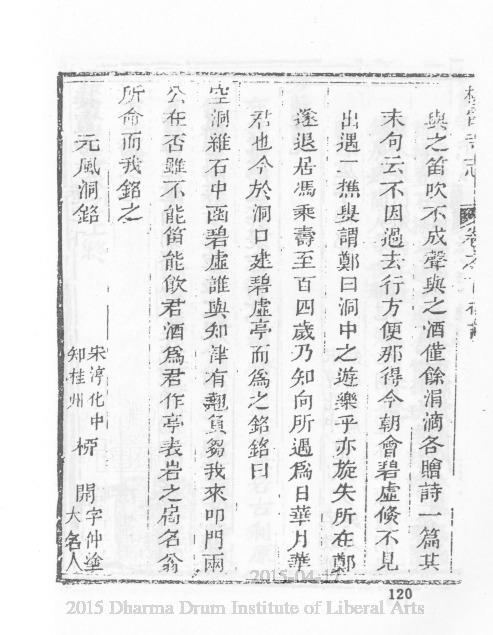 與之笛吹不成聲與之酒僅餘涓滴各贈詩一篇其
末句云不因過去行方便那得今朝會碧虛倏不見
出遇二樵叟謂鄭曰洞中之遊樂乎亦旋失所在鄭
遂退居馮乘壽至百四歲乃知向所遇爲日華月華
君也今於洞口建碧虛亭而爲之銘銘曰
空洞維石中函碧虛誰與知津有翹負芻我來叩門兩
公在否雖不能笛能飲君酒爲君作亭表岩之扃名翁
所命而我銘之
元風洞銘
宋淳化中
知桂州
柳
開
字仲塗
大名人
120
2015-04-17
2015 Dharma Drum Institute of Liberal Arts